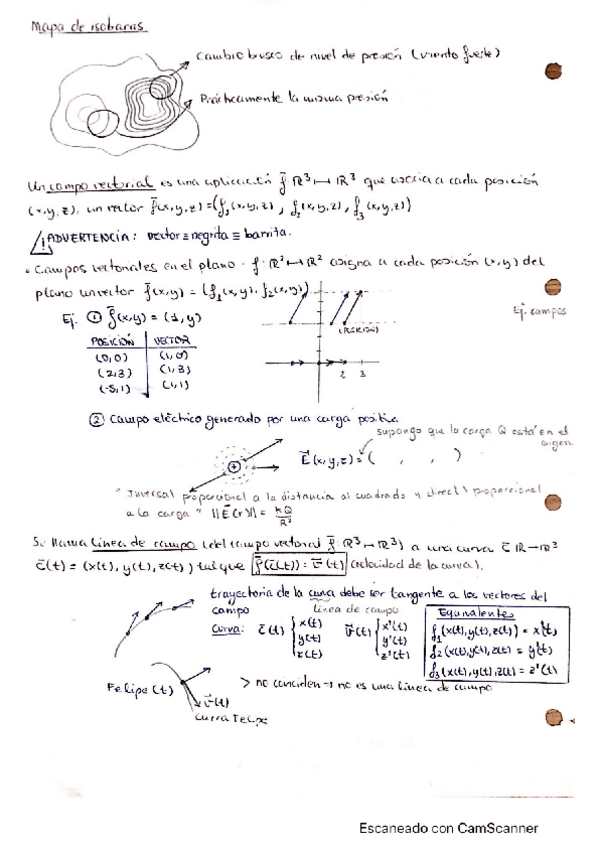 Mapa de isobaras
Cambio brusco de nivel de presión (viento fuerte)
Prácticamente la misma presión
Un campo vectorial es una aplicación f̄: ℝ³ ↦ ℝ³ que asocia a cada posición
(x,y,z), un vector f̄(x,y,z) = (f₁(x,y,z), f₂(x,y,z), f₃(x,y,z))
! ADVERTENCIA: vector ≡ negrita ≡ barrita.
• Campos vectoriales en el plano: f: ℝ² ↦ ℝ² asigna a cada posición (x,y) del
plano un vector f̄(x,y) = (f₁(x,y), f₂(x,y))
Ej. ① f̄(x,y) = (1, y)
Ej. campos
POSICIÓN VECTOR
(0,0) (1,0)
(2,3) (1,3)
(-5,1) (1,1)
(POSICIÓN)
2 3
② Campo eléctrico generado por una carga positiva
supongo que la carga Q está en el
origen
E⃗(x,y,z) = ( , , )
+
"Inversal proporcional a la distancia al cuadrado y direct| proporcional
a la carga" ||E⃗(r)|| = kQ/R²
Se llama línea de campo (del campo vectorial f̄: ℝ³ ↦ ℝ³) a una curva c̄: ℝ ↦ ℝ³
c̄(t) = (x(t), y(t), z(t)) tal que f̄(c̄(t)) = v̄(t) (velocidad de la curva).
trayectoria de la curva debe ser tangente a los vectores del
campo
línea de campo
Curva: c̄(t) { x(t) y(t) z(t) v̄(t) { x'(t) y'(t) z'(t)
Equivalentes
f₁(x(t),y(t),z(t)) = x'(t)
f₂(x(t),y(t),z(t)) = y'(t)
f₃(x(t),y(t),z(t)) = z'(t)
Felipe (t)
> no coinciden → no es una línea de campo
v̄(t)
Curva Felipe
Escaneado con CamScanner